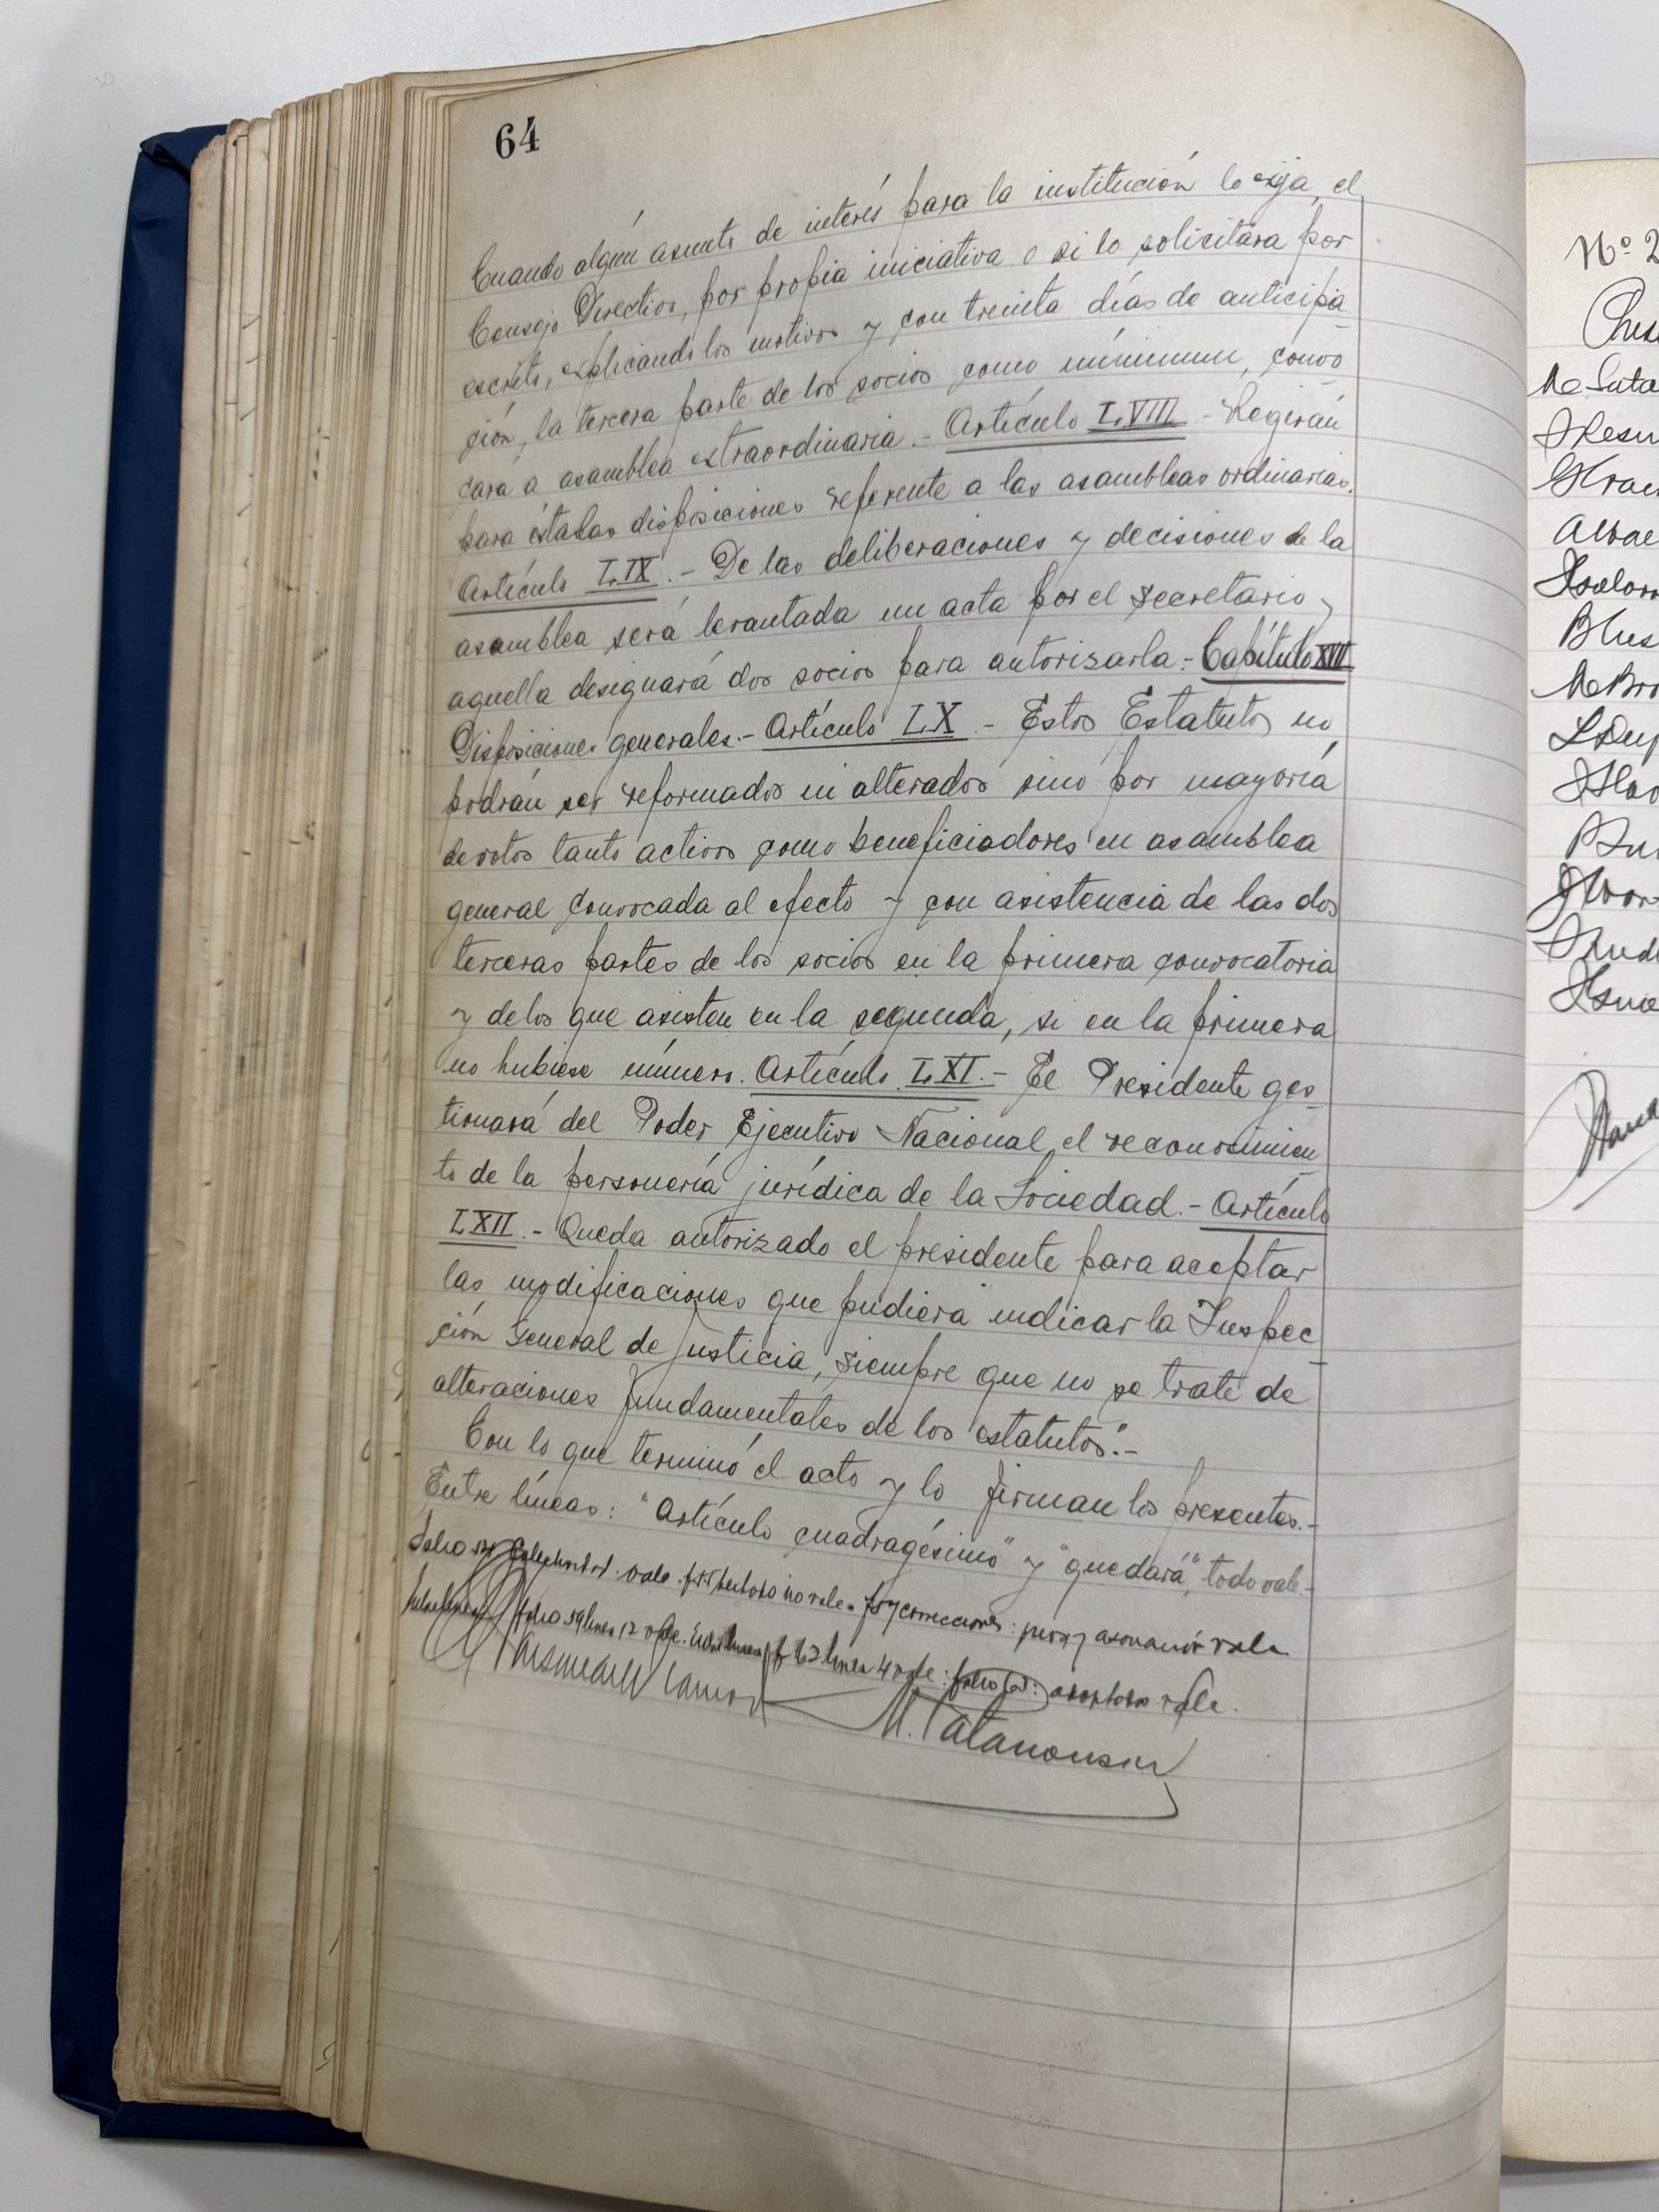 64
Cuando algún asunto de interés para la institución lo exija, el
Consejo Directivo, por propia iniciativa o si lo solicitára por
escrito, explicando los motivos y con treinta días de anticipa
ción, la tercera parte de los socios como mínimum, convo
cará á asamblea extraordinaria.- Artículo LVIII.- Regirán
para éstas las disposiciones referente a las asambleas ordinarias.
Artículo LIX.- De las deliberaciones y decisiones de la
asamblea será levantada un acta por el secretario y
aquella designará dos socios para autorizarla.- Capítulo XVII
Disposiciones generales.- Artículo LX.- Estos Estatutos no
podrán ser reformados ni alterados sino por mayoría
de votos tanto activos como beneficiadores en asamblea
general convocada al efecto y con asistencia de las dos
terceras partes de los socios en la primera convocatoria
y de los que asisten en la segunda, si en la primera
no hubiese número. Artículo LXI.- El Presidente ges
tionará del Poder Ejecutivo Nacional el reconocimien
to de la personería jurídica de la Sociedad.- Artículo
LXII.- Queda autorizado el presidente para aceptar
las modificaciones que pudiera indicar la Inspec
ción General de Justicia, siempre que no se trate de
alteraciones fundamentales de los estatutos".-
Con lo que terminó el acto y lo firman los presentes.-
Entre líneas: "Artículo cuadragésimo" y "quedará", todo vale.-
vale. no vale. correcciones: vale
folio 59 línea 12 vale. 62 línea 4 vale: folio vale.
Nº 2